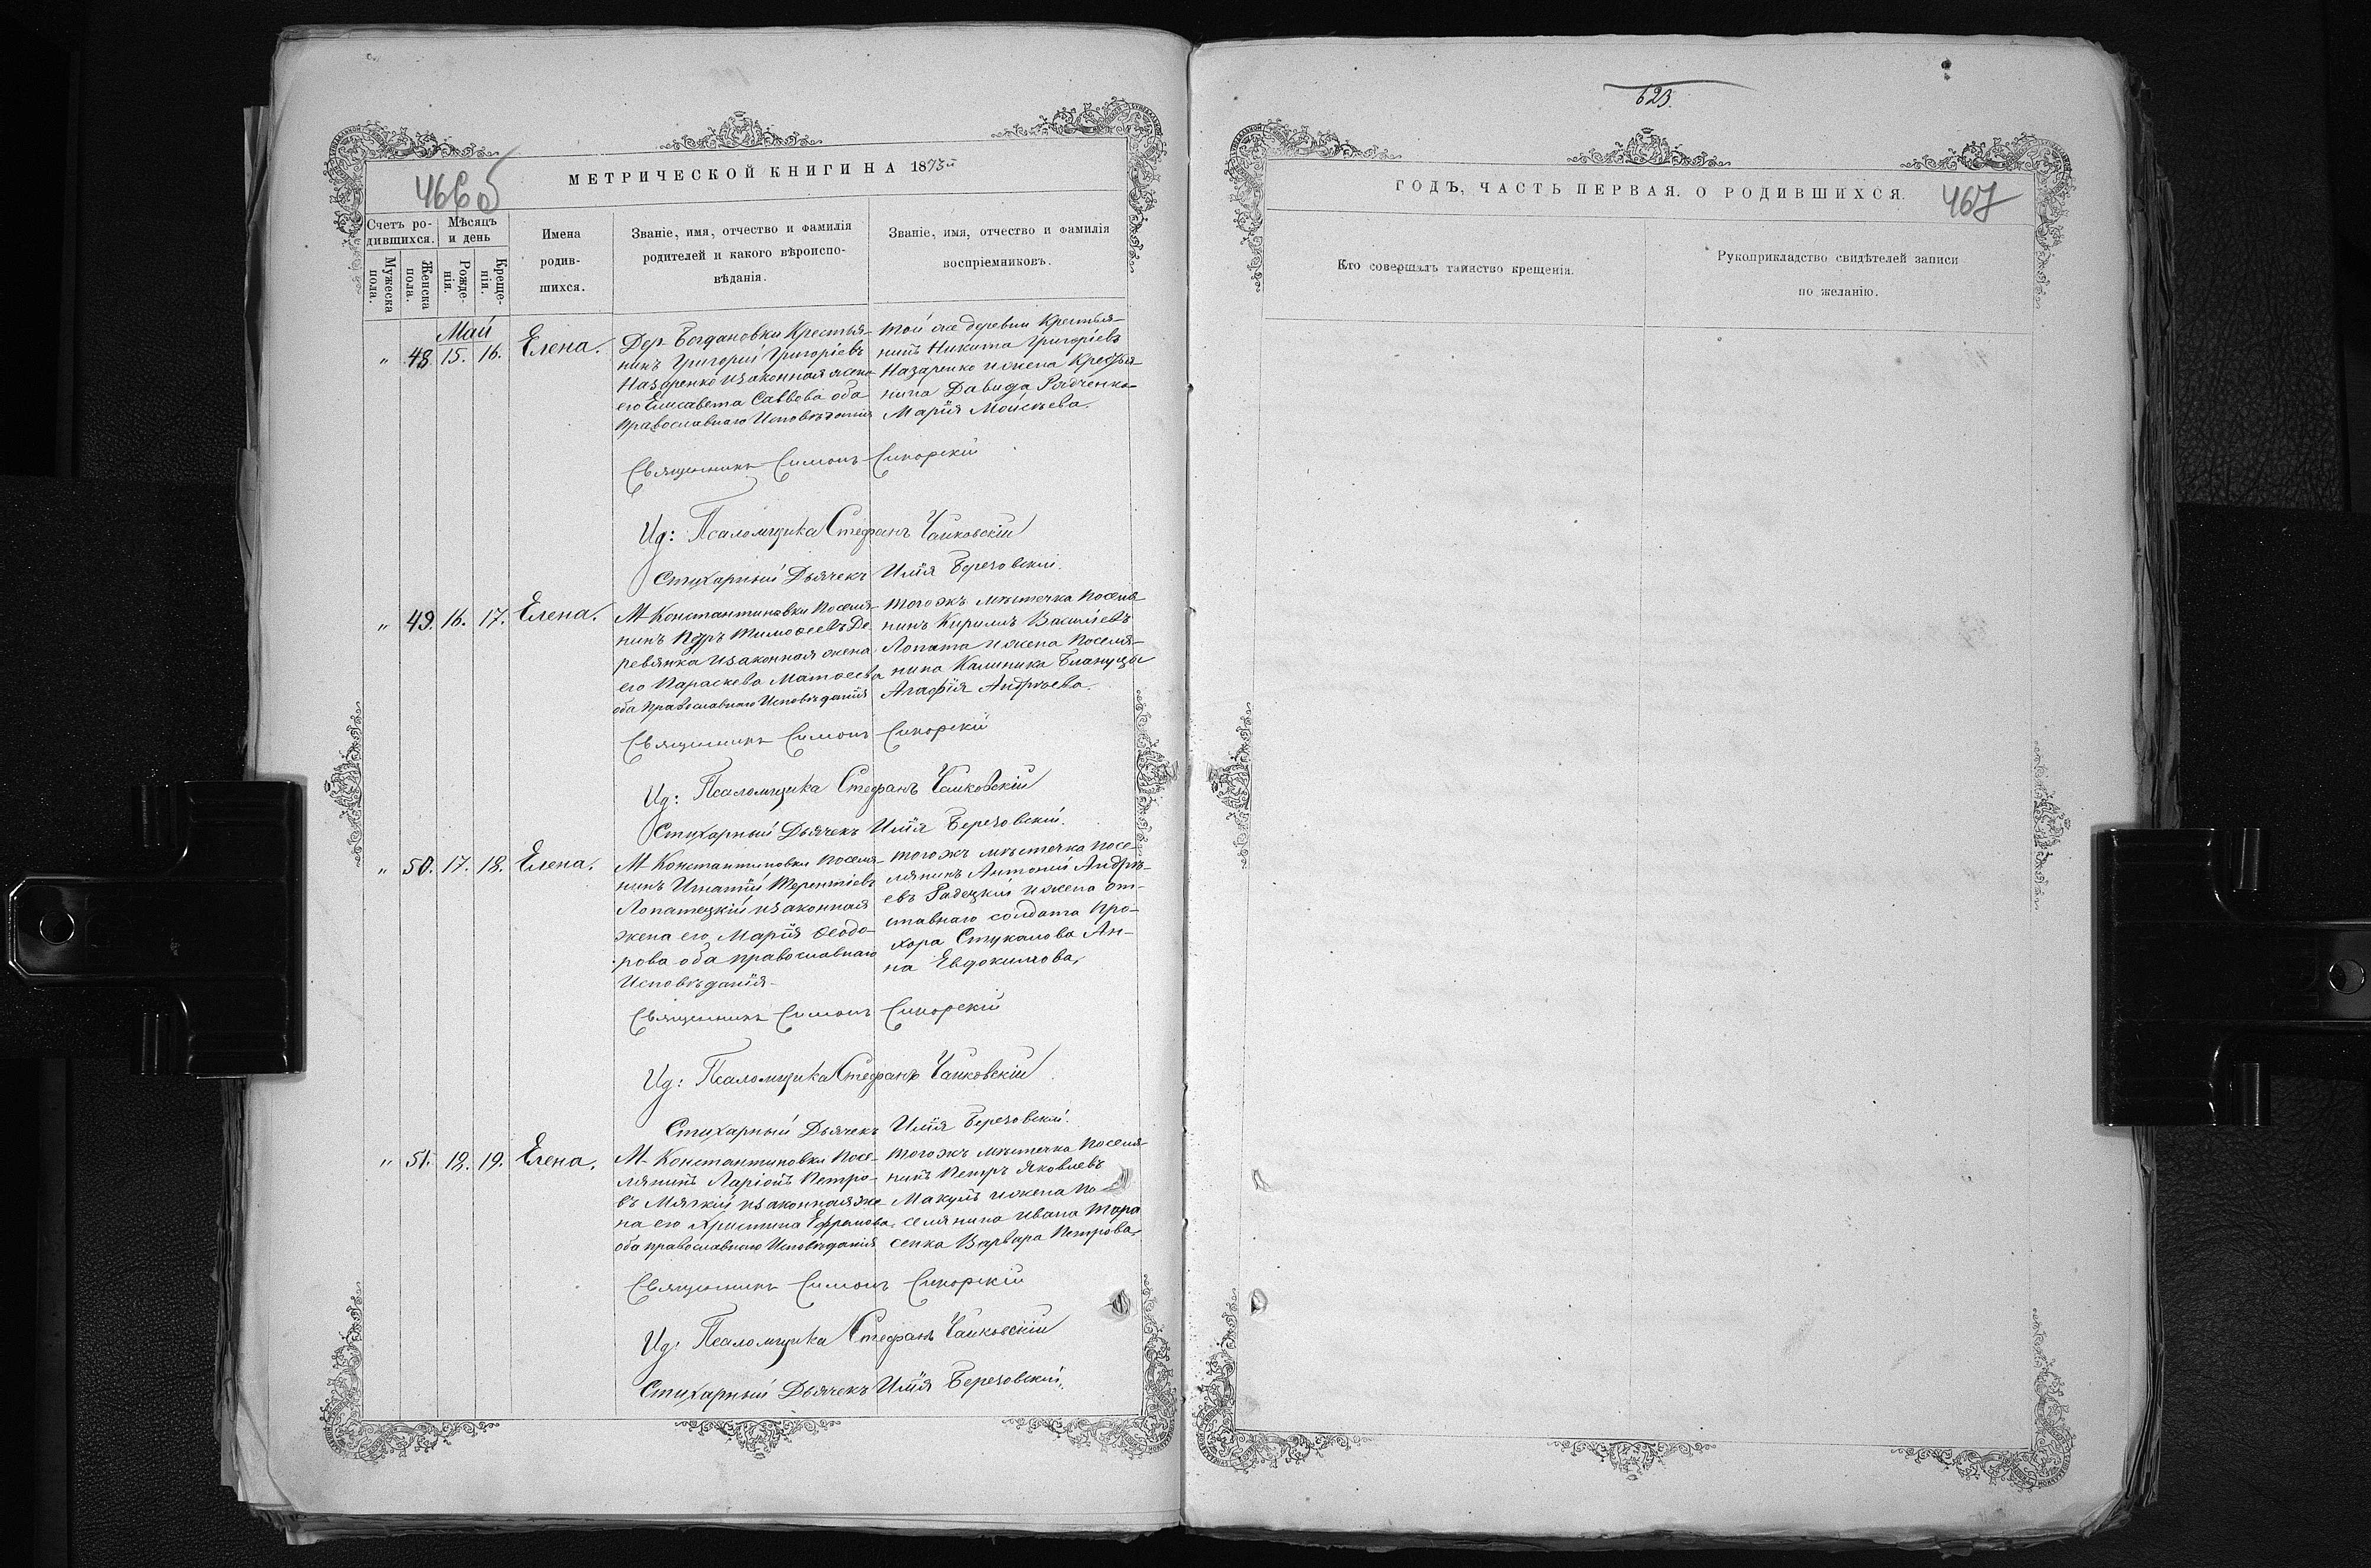 466б
МЕТРИЧЕСКОЙ КНИГИ НА 1873й
Счетъ ро-
дившихся.
Мѣсяцъ
и день
Мужеска
пола.
Женска
пола.
Рожде-
нія.
Креще-
нія.
Имена
родив-
шихся.
Званіе, имя, отчество и фамилія
родителей и какого вѣроиспо-
вѣданія.
Званіе, имя, отчество и фамилія
воспріемниковъ.
Май
" 48. 15. 16. Елена.
Дер. Богдановки Крестья-
нинъ Григорій Григоріевъ
Назаренко и законная жена
его Елисавета Саввова оба
Православнаго Исповѣданія
той же деревни Крестья-
нинъ Никита Григоріевъ
Назаренко и жена Крестья-
нина Давида Рядченка
Марія Моисѣева.
Священникъ Симонъ Сикорскій
Ид: Псаломщика Стефанъ Чайковскій
Стихарный Дьячекъ Илія Березовскій.
" 49. 16. 17. Елена.
М. Константиновки поселя-
нинъ Петръ Тимофеевъ Де-
ревянка и законная жена
его Параскева Матѳеева
оба православнаго Исповѣданія
того жъ мѣстечка поселя-
нинъ Кирилъ Василіевъ
Лопата и жена поселя-
нина Калиника Блануцы
Агафія Андрѣева.
Священникъ Симонъ Сикорскій
Ид: Псаломщика Стефанъ Чайковскій
Стихарный Дьячекъ Илія Березовскій.
" 50. 17. 18. Елена.
М. Константиновки поселя-
нинъ Игнатій Терентіевъ
Лопатецкій и законная
жена его Марія Ѳеодо-
рова оба православнаго
Исповѣданія
того жъ мѣстечка посе-
лянинъ Антоній Андрѣ-
евъ Радецкій и жена от-
ставнаго солдата Про-
хора Стукалова Ан-
на Евдокимова,
Священникъ Симонъ Сикорскій
Ид: Псаломщика Стефанъ Чайковскій
Стихарный Дьячекъ Илія Березовскій.
" 51. 18. 19. Елена.
М. Константиновки посе-
лянинъ Ларіонъ Петро-
въ Мягкій и законная же-
на его Христина Ефремова
оба православнаго Исповѣданія
того жъ мѣстечка поселя-
нинъ Петръ Яковлевъ
Макуш и жена по-
селянина Ивана Тара-
сенка Варвара Петрова,
Священникъ Симонъ Сикорскій
Ид: Псаломщика Стефанъ Чайковскій
Стихарный Дьячекъ Илія Березовскій.
623.
ГОДЪ, ЧАСТЬ ПЕРВАЯ. О РОДИВШИХСЯ.
467
Кто совершалъ таинство крещенія.
Рукоприкладство свидѣтелей записи
по желанію.